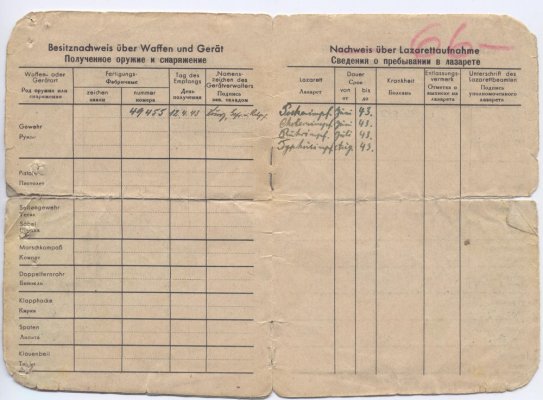 6.6.-
Besitznachweis über Waffen und Gerät
Полученное оружие и снаряжение
Waffen- oder Gerätart
Род оружия или снаряжения
Fertigungs-
Фабричные
zeichen
знаки
nummer
номера
Tag des Empfangs
День получения
Namens-zeichen des Geräteverwalters
Подпись зав. складом
Gewehr 49455 12.4.43
Ружье
Pistole
Пистолет
Seitengewehr
Тесак
Säbel
Marschkompaß
Компас
Doppelfernrohr
Бинокль
Klapphacke
Кирка
Spaten
Лопата
Klauenbeil
Nachweis über Lazarettaufnahme
Сведения о пребывании в лазарете
Lazarett
Лазарет
Dauer
Срок
von
от
bis
до
Krankheit
Болезнь
Entlassungs-vermerk
Отметка о выписке из лазарета
Unterschrift des Lazarettbeamten
Подпись уполномоченного лазарета
Pockenimpf. Juni 43.
Choleraimpf. Juni 43.
Ruhrimpf. Juli 43.
Typhusimpf. Aug. 43.